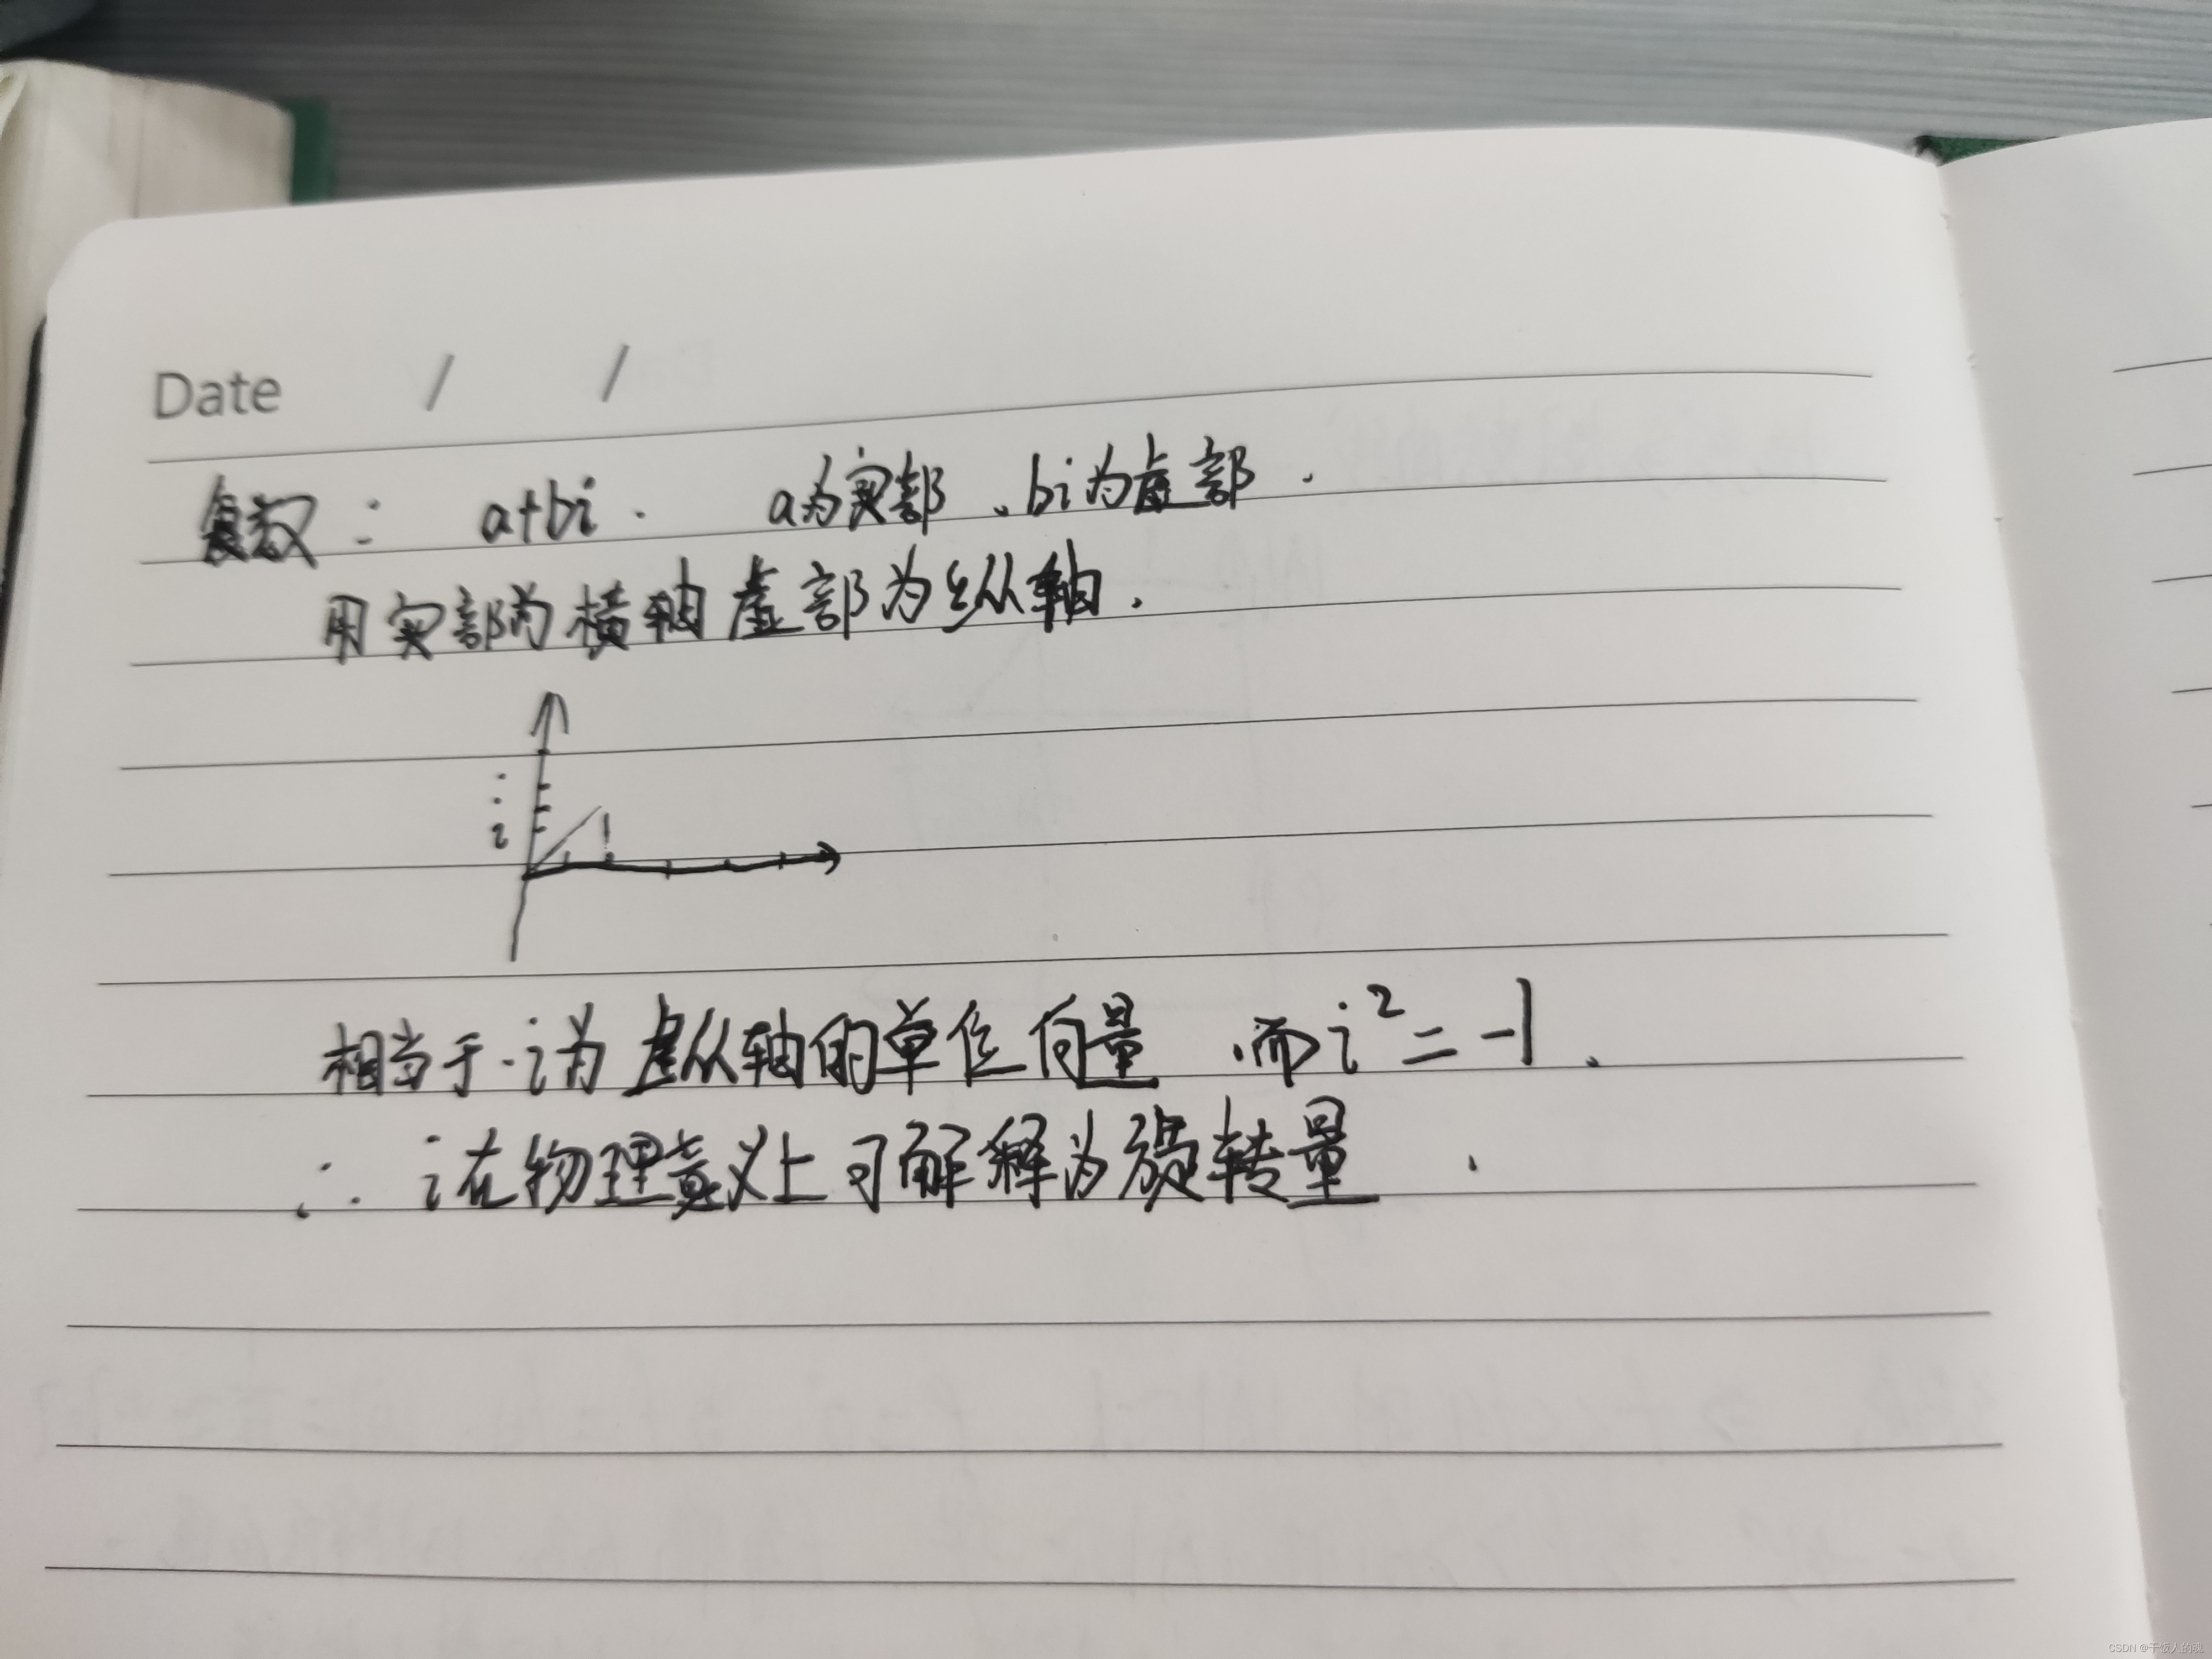 Date / /
复数： a+bi． a为实部、bi为虚部．
用实部为横轴虚部为纵轴．
i
相当于·i为虚从轴的单位向量 ，而i²=-1、
∴ i在物理意义上可解释为旋转量．
CSDN @干饭人的魂